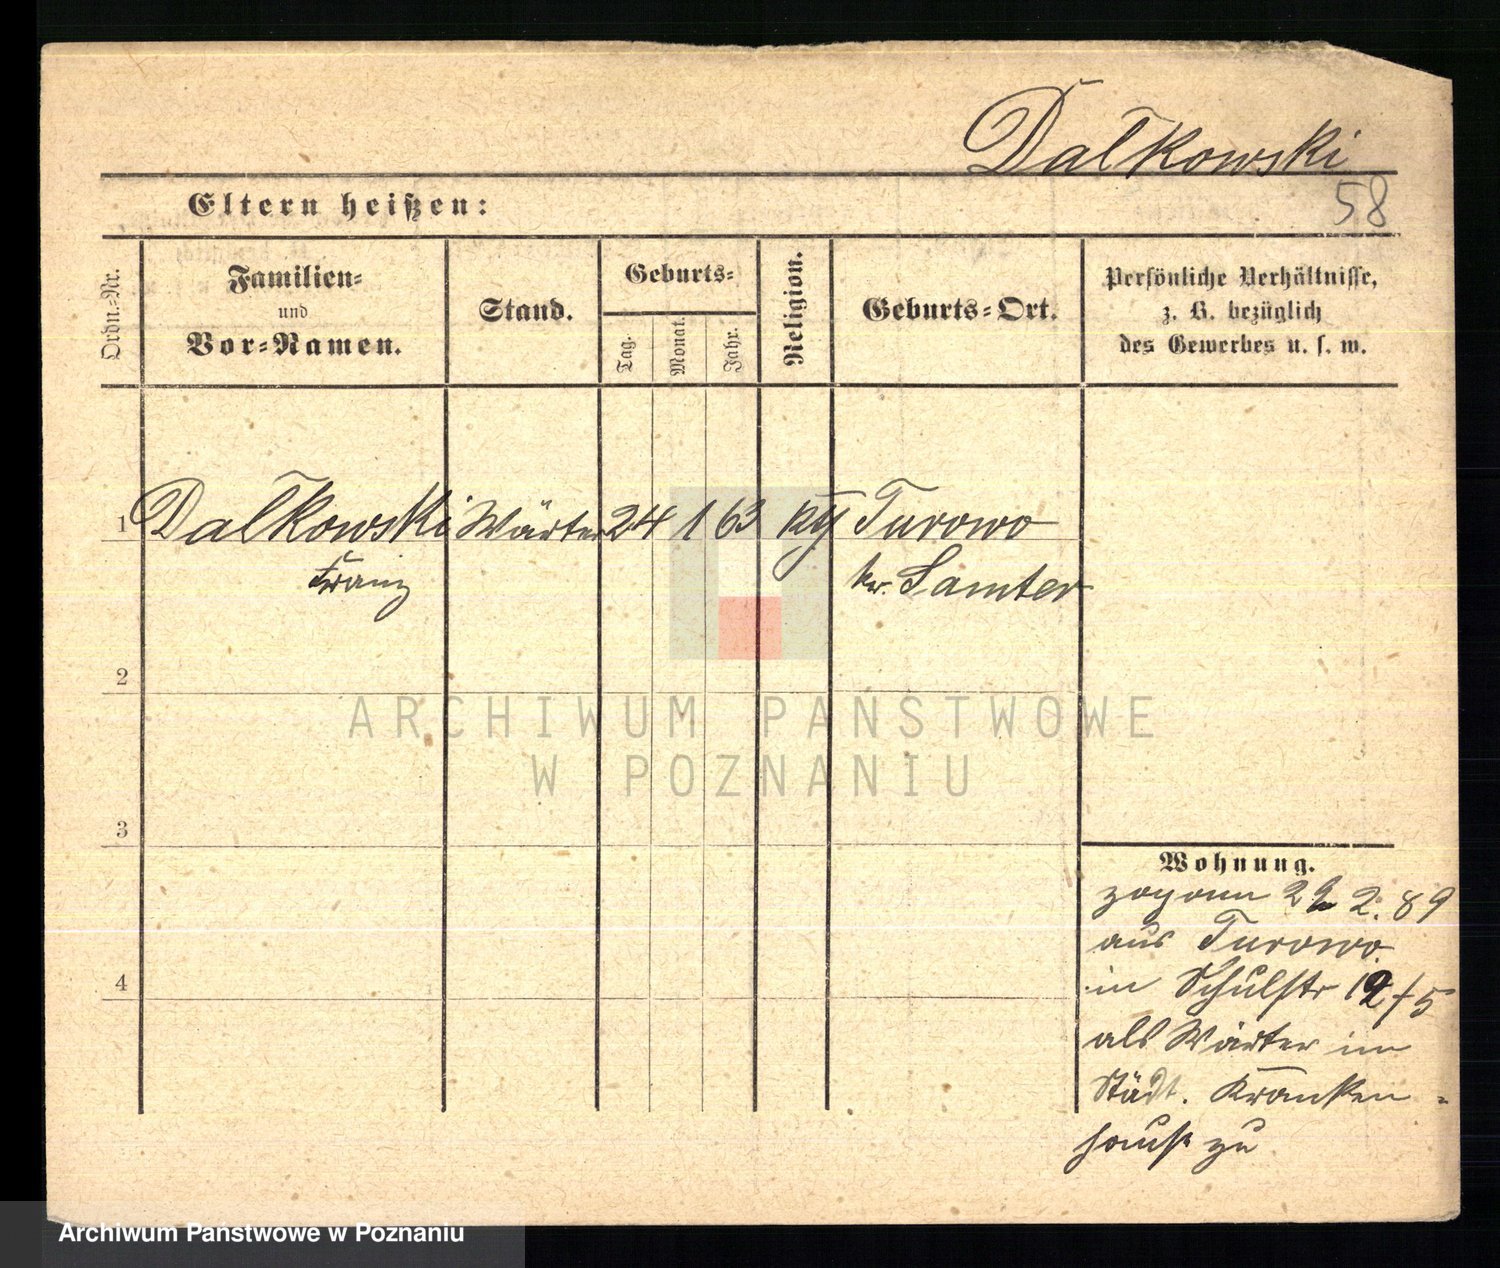 Dałkowski
58
Eltern heißen:
Ordn.-Nr.
Familien-
und
Vor-Namen.
Stand.
Geburts-
Tag.
Monat.
Jahr.
Religion.
Geburts-Ort.
Persönliche Verhältnisse,
z. B. bezüglich
des Gewerbes u. s. w.
1 Dałkowski Wärter 24 1 63 Turowo
Franz kr. Samter
2
ARCHIWUM PAŃSTWOWE
W POZNANIU
3
4
Wohnung.
2. 89
aus Turowo
in Schulstr 12/5
als Wärter im
Städt. Kranken-
hause zu
Archiwum Państwowe w Poznaniu